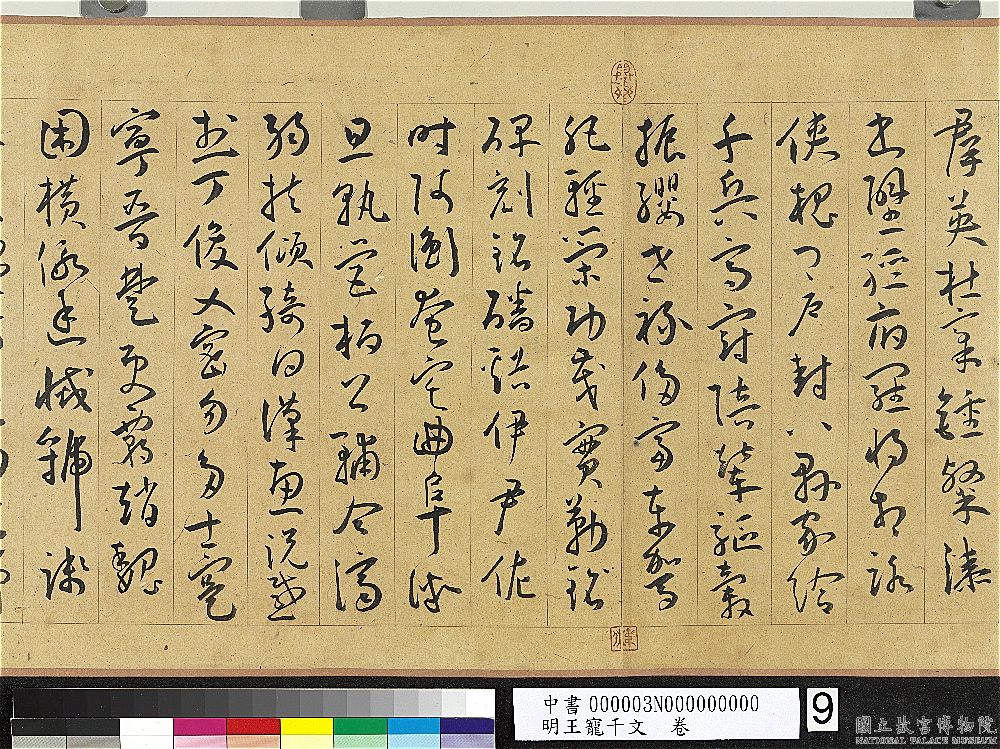 群英杜稾鍾隸漆
書壁經府羅將相路
俠槐卿戶封八縣家給
千兵高冠陪輦驅轂
振纓世祿侈富車駕
肥輕策功茂實勒銘
碑刻銘磻溪伊尹佐
時阿衡奄宅曲阜微
旦孰營桓公輔合濟
弱扶傾綺回漢惠說感
武丁俊乂密勿多士寔
寧晉楚更霸趙魏
困橫假途滅虢踐
中書 000003N000000000
明王寵千文 卷
9
國立故宮博物院
NATIONAL PALACE MUSEUM